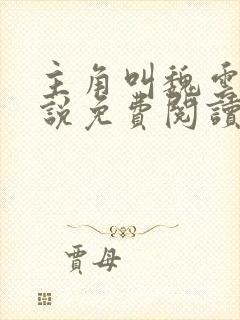 主角叫魏雲
說免費閱讀
賈母